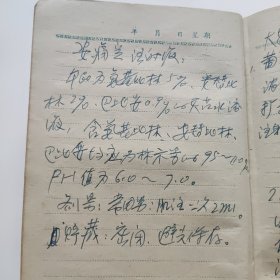 年 月 日 星期
安痛定注射液:
本品为氨基比林5%, 安替比
林2%, 巴比妥0.9%的灭菌水溶
液, 含氨基比林、安替比林、
巴比妥均应为标示量的95~
PH值为6.0~7.0。
剂量: 常用量: 肌注一次2ml。
贮藏: 密闭, 避光保存。